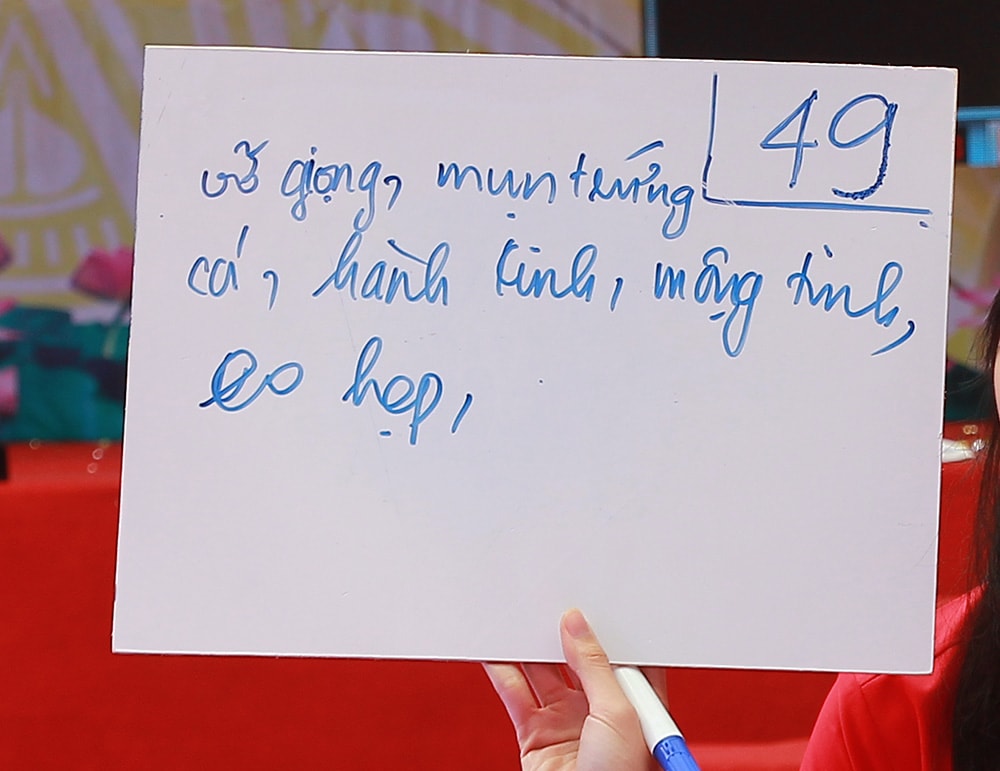 49
vỡ giọng, mụn trứng
cá, hành kinh, mộng tinh,
eo hẹp,